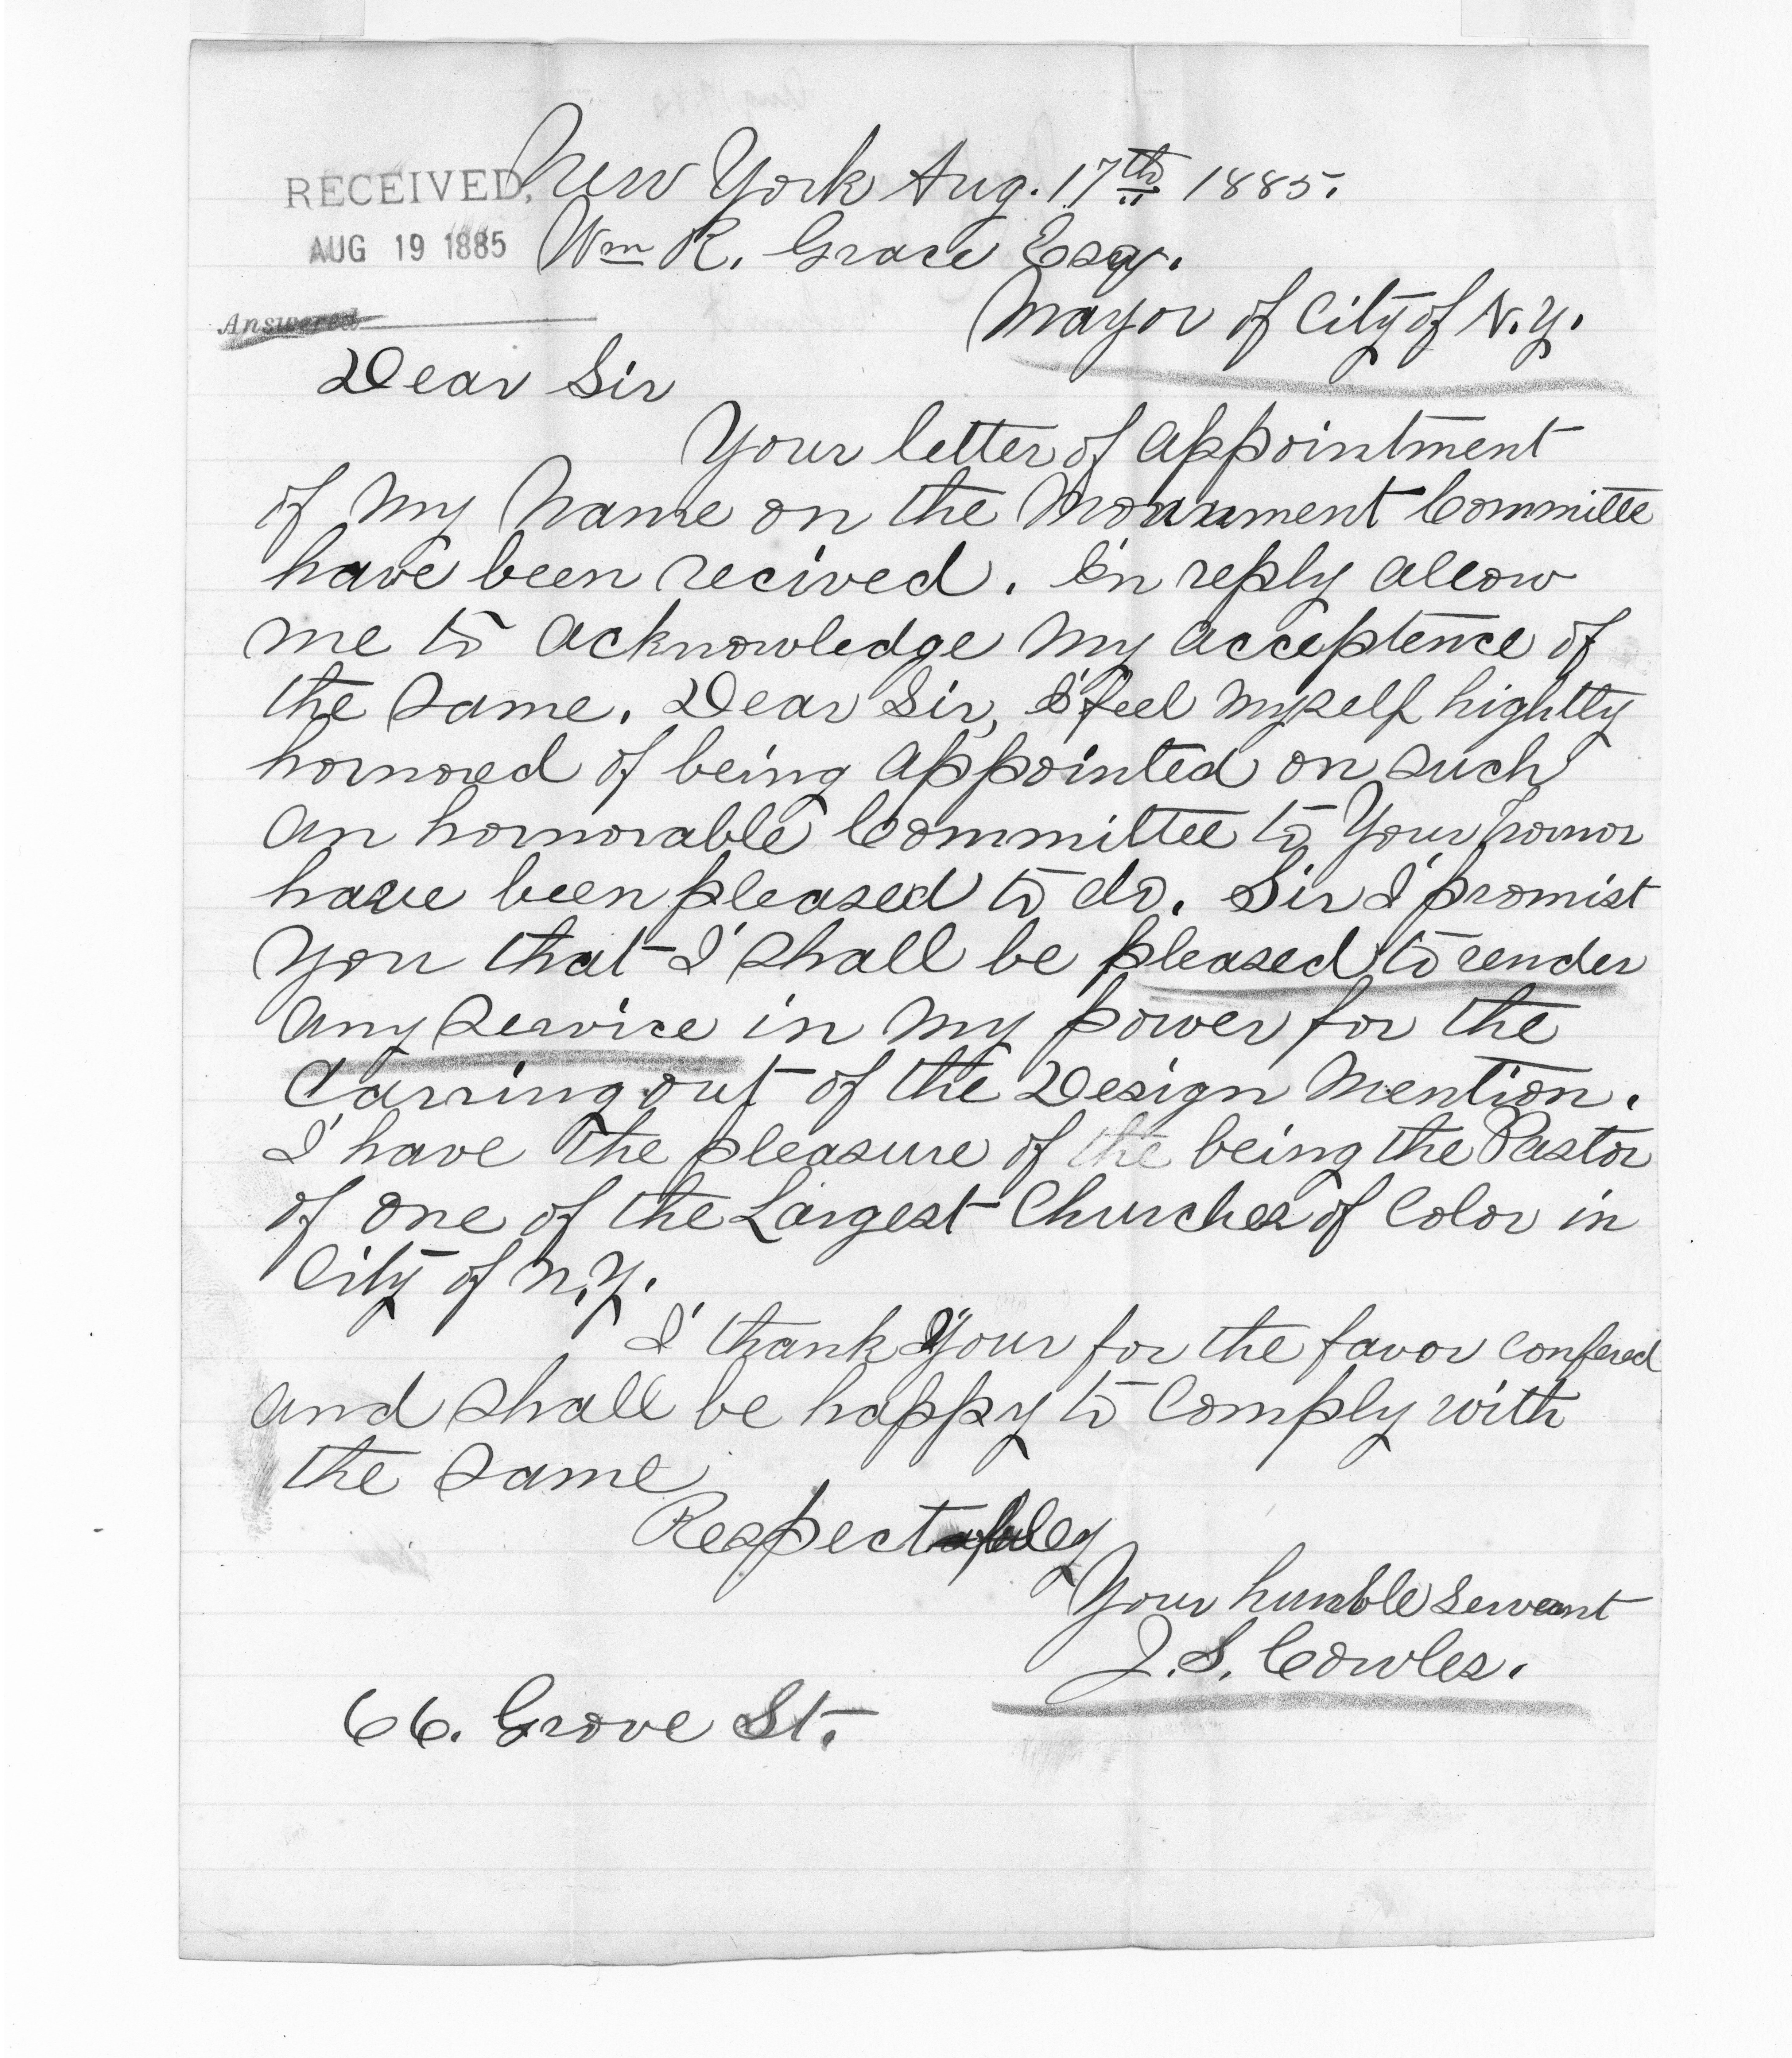 RECEIVED, New York Aug. 17th 1885.
AUG 19 1885 Wm R. Grace Esqr.
Answered Mayor of City of N.Y.
Dear Sir
Your letter of appointment
of my Name on the Monument Committe
have been recived. In reply allow
me to acknowledge my acceptence of
the same. Dear Sir, I feel myself hightly
hornored of being appointed on such
an hornorable Committee to Your hornor
have been pleased to do. Sir I promist
you that I shall be pleased to render
any service in my power for the
Carring out of the Design mention.
I have the pleasure of the being the Pastor
of one of the Largest Churches of Color in
City of N.Y.
I thank Your for the favor confered
and shall be happy to Comply with
the same
Respectfuley
Your humble servant
J. S. Cowles.
66. Grove St.